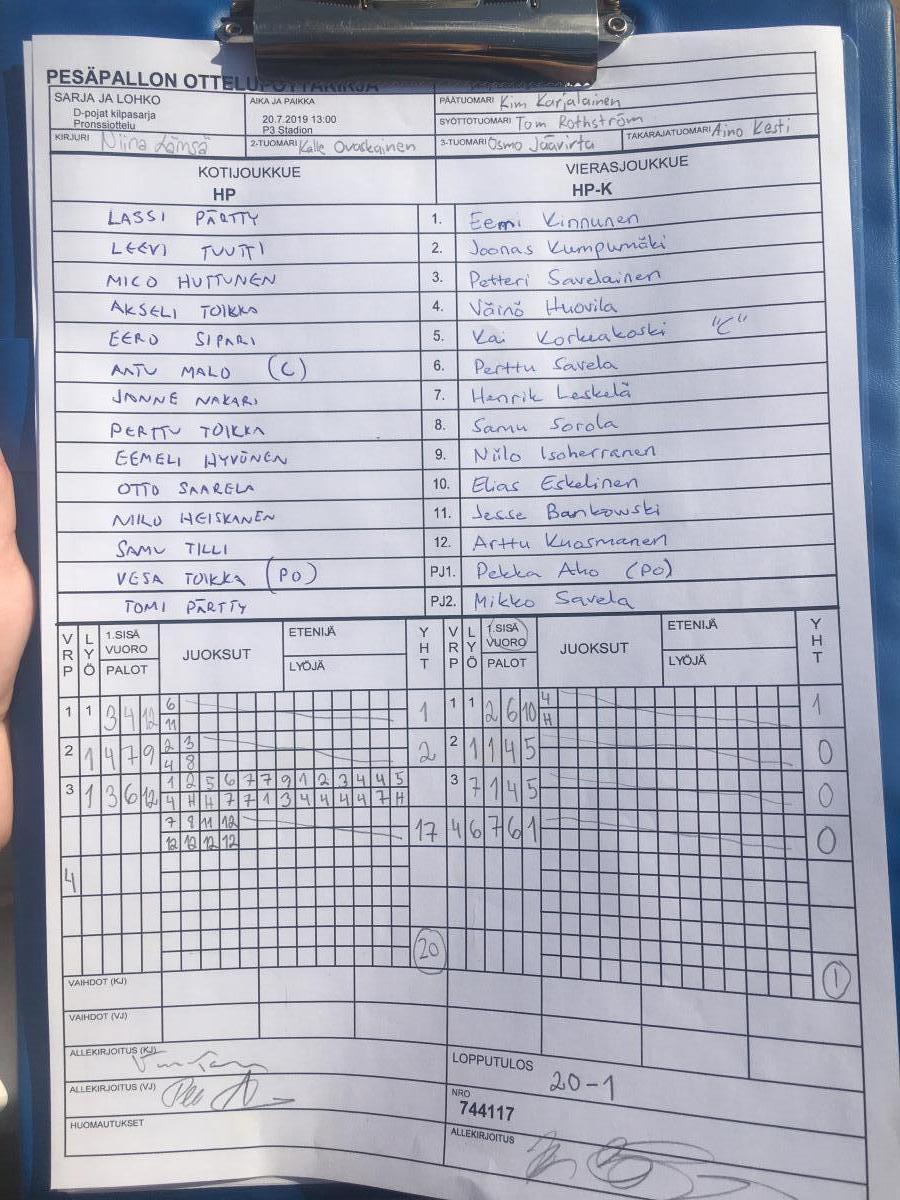 PESÄPALLON OTTELUPÖYTÄKIRJA
SARJA JA LOHKO
D-pojat kilpasarja
Pronssiottelu
AIKA JA PAIKKA
20.7.2019 13:00
P3 Stadion
PÄÄTUOMARI Kim Karjalainen
SYÖTTÖTUOMARI Tom Rothström
KIRJURI Niina Lämsä
2-TUOMARI Kalle Ovaskainen
3-TUOMARI Osmo Jäävirta
TAKARAJATUOMARI Aino Kesti
KOTIJOUKKUE
HP
VIERASJOUKKUE
HP-K
LASSI PÄRTTY 1. Eemi Kinnunen
LEEVI TUUTTI 2. Joonas Kumpumäki
MICO HUTTUNEN 3. Petteri Savelainen
AKSELI TOIKKA 4. Väinö Huovila
EERO SIPARI 5. Kai Korkeakoski "C"
ANTU MALO (C) 6. Perttu Savela
JANNE NAKARI 7. Henrik Leskelä
PERTTU TOIKKA 8. Samu Sorola
EEMELI HYVÖNEN 9. Niilo Isoherranen
OTTO SAARELA 10. Elias Eskelinen
MILO HEISKANEN 11. Jesse Bankowski
SAMU TILLI 12. Arttu Kuosmanen
VESA TOIKKA (PO) PJ1. Pekka Aho (PO)
TOMI PÄRTTY PJ2. Mikko Savela
VRP LYÖ 1.SISÄ VUORO PALOT JUOKSUT ETENIJÄ LYÖJÄ YHT VRP LYÖ 1.SISÄ VUORO PALOT JUOKSUT ETENIJÄ LYÖJÄ YHT
1 1 3 4 12 6 1 1 1 2 6 10 4 1
11 H
2 1 4 7 9 2 3 2 2 1 1 4 5 0
4 8
3 1 3 6 12 1 2 5 6 7 7 9 1 2 3 4 4 5 3 7 1 4 5 0
4 H H 7 7 1 3 4 4 4 4 7 H
7 8 11 12 17 4 6 7 6 1 0
12 12 12 12
4
20 1
VAIHDOT (KJ)
VAIHDOT (VJ)
ALLEKIRJOITUS (KJ)
ALLEKIRJOITUS (VJ)
HUOMAUTUKSET
LOPPUTULOS
20-1
NRO
744117
ALLEKIRJOITUS